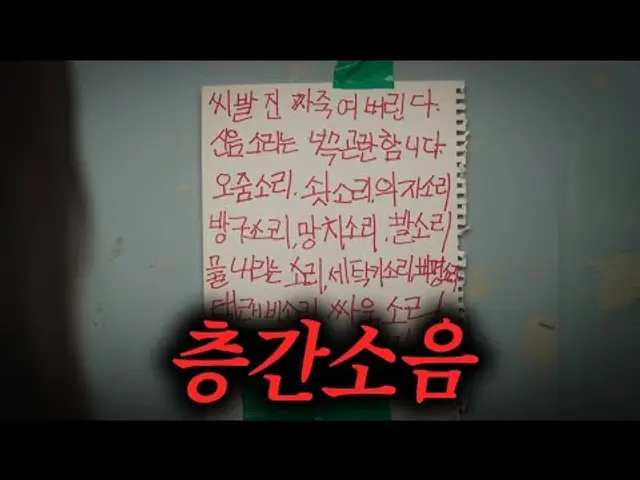 씨발 진 짜죽여버린다.
신음 소리는 넉극곤란합니다.
오줌소리. 쇳소리.의자소리
방구소리, 망치소리, 발소리
물 나리는 소리, 세탁기소리,
테레비소리, 싸우 소리
층간소음